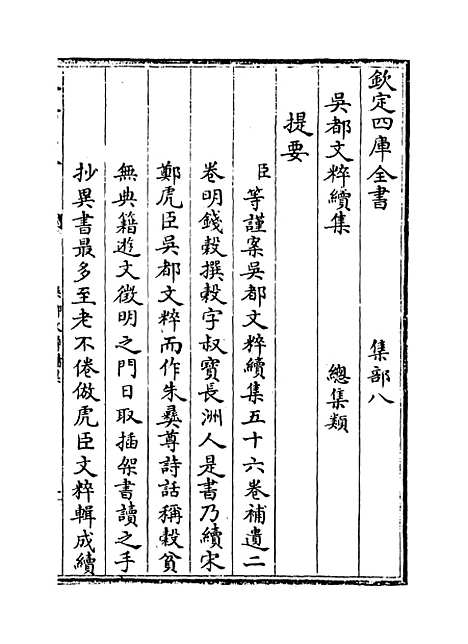 欽定四庫全書　集部八
吳都文粹續集　總集類
提要
臣等謹案吳都文粹續集五十六卷補遺二
卷明錢榖撰榖字叔寶長洲人是書乃續宋
鄭虎臣吳都文粹而作朱彝尊詩話稱榖貧
無典籍遊文徵明之門日取插架書讀之手
抄異書最多至老不倦倣虎臣文粹輯成續